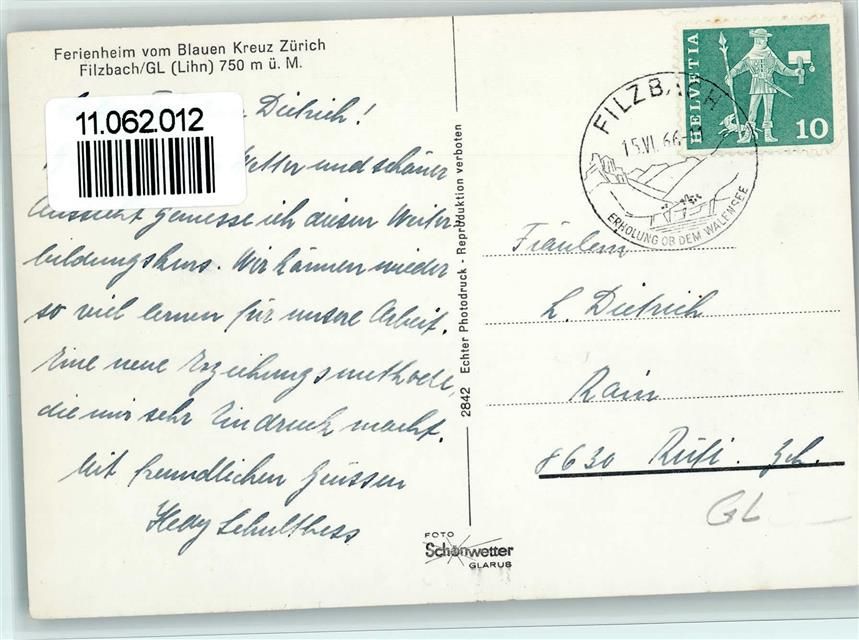 Ferienheim vom Blauen Kreuz Zürich
Filzbach/GL (Lihn) 750 m ü. M.
11.062.012
Dietrich!
Wetter und schöner
Aussicht geniesse ich diesen Weiter-
bildungskurs. Wir können wieder
so viel lernen für unsere Arbeit.
Eine neue Erziehungsmethode,
die mir sehr Eindruck macht.
Mit freundlichen Grüssen
Helly Schulthess
2842 Echter Photodruck - Reproduktion verboten
FOTO
Schönwetter
GLARUS
HELVETIA
10
FILZBACH
15.VI.66
ERHOLUNG OB DEM WALENSEE
Fräulein
L. Dietrich
Rain
8630 Rüti. Zch.
GL